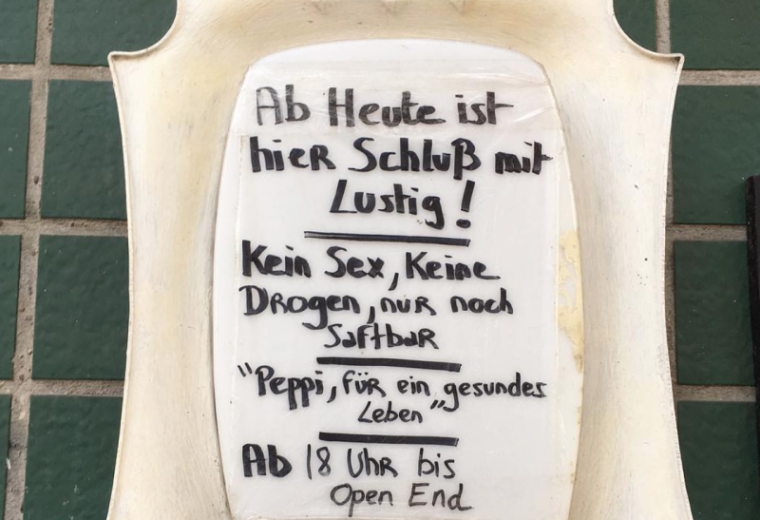 Ab Heute ist
hier Schluß mit
Lustig!
Kein Sex, Keine
Drogen, nur noch
Saftbar
"Peppi, für ein gesundes
Leben"
Ab 18 Uhr bis
Open End